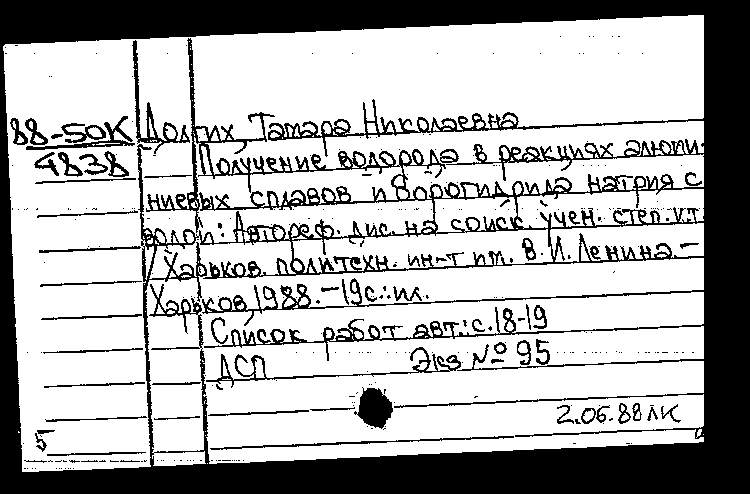 88-50К
4838
Долгих, Тамара Николаевна
Получение водорода в реакциях алюми-
ниевых сплавов и борогидрида натрия с
водой: Автореф. дис. на соиск. учен. степ. к.т.
/ Харьков. политехн. ин-т им. В. И. Ленина. –
Харьков, 1988. – 19с.: ил.
Список работ авт.: с. 18-19
ДСП Экз № 95
2.06.88 лк
5